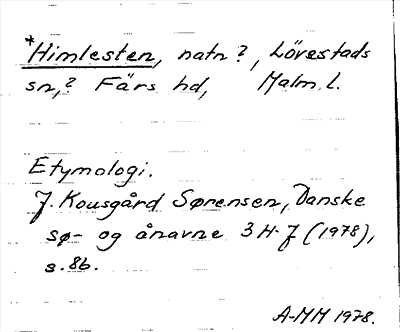 *Himlesten, natn?, Lövestads
sn,? Färs hd, Malm. l.
Etymologi.
J. Kousgård Sørensen, Danske
sø- og ånavne 3 H-J (1978),
s. 86.
A-MM 1978.